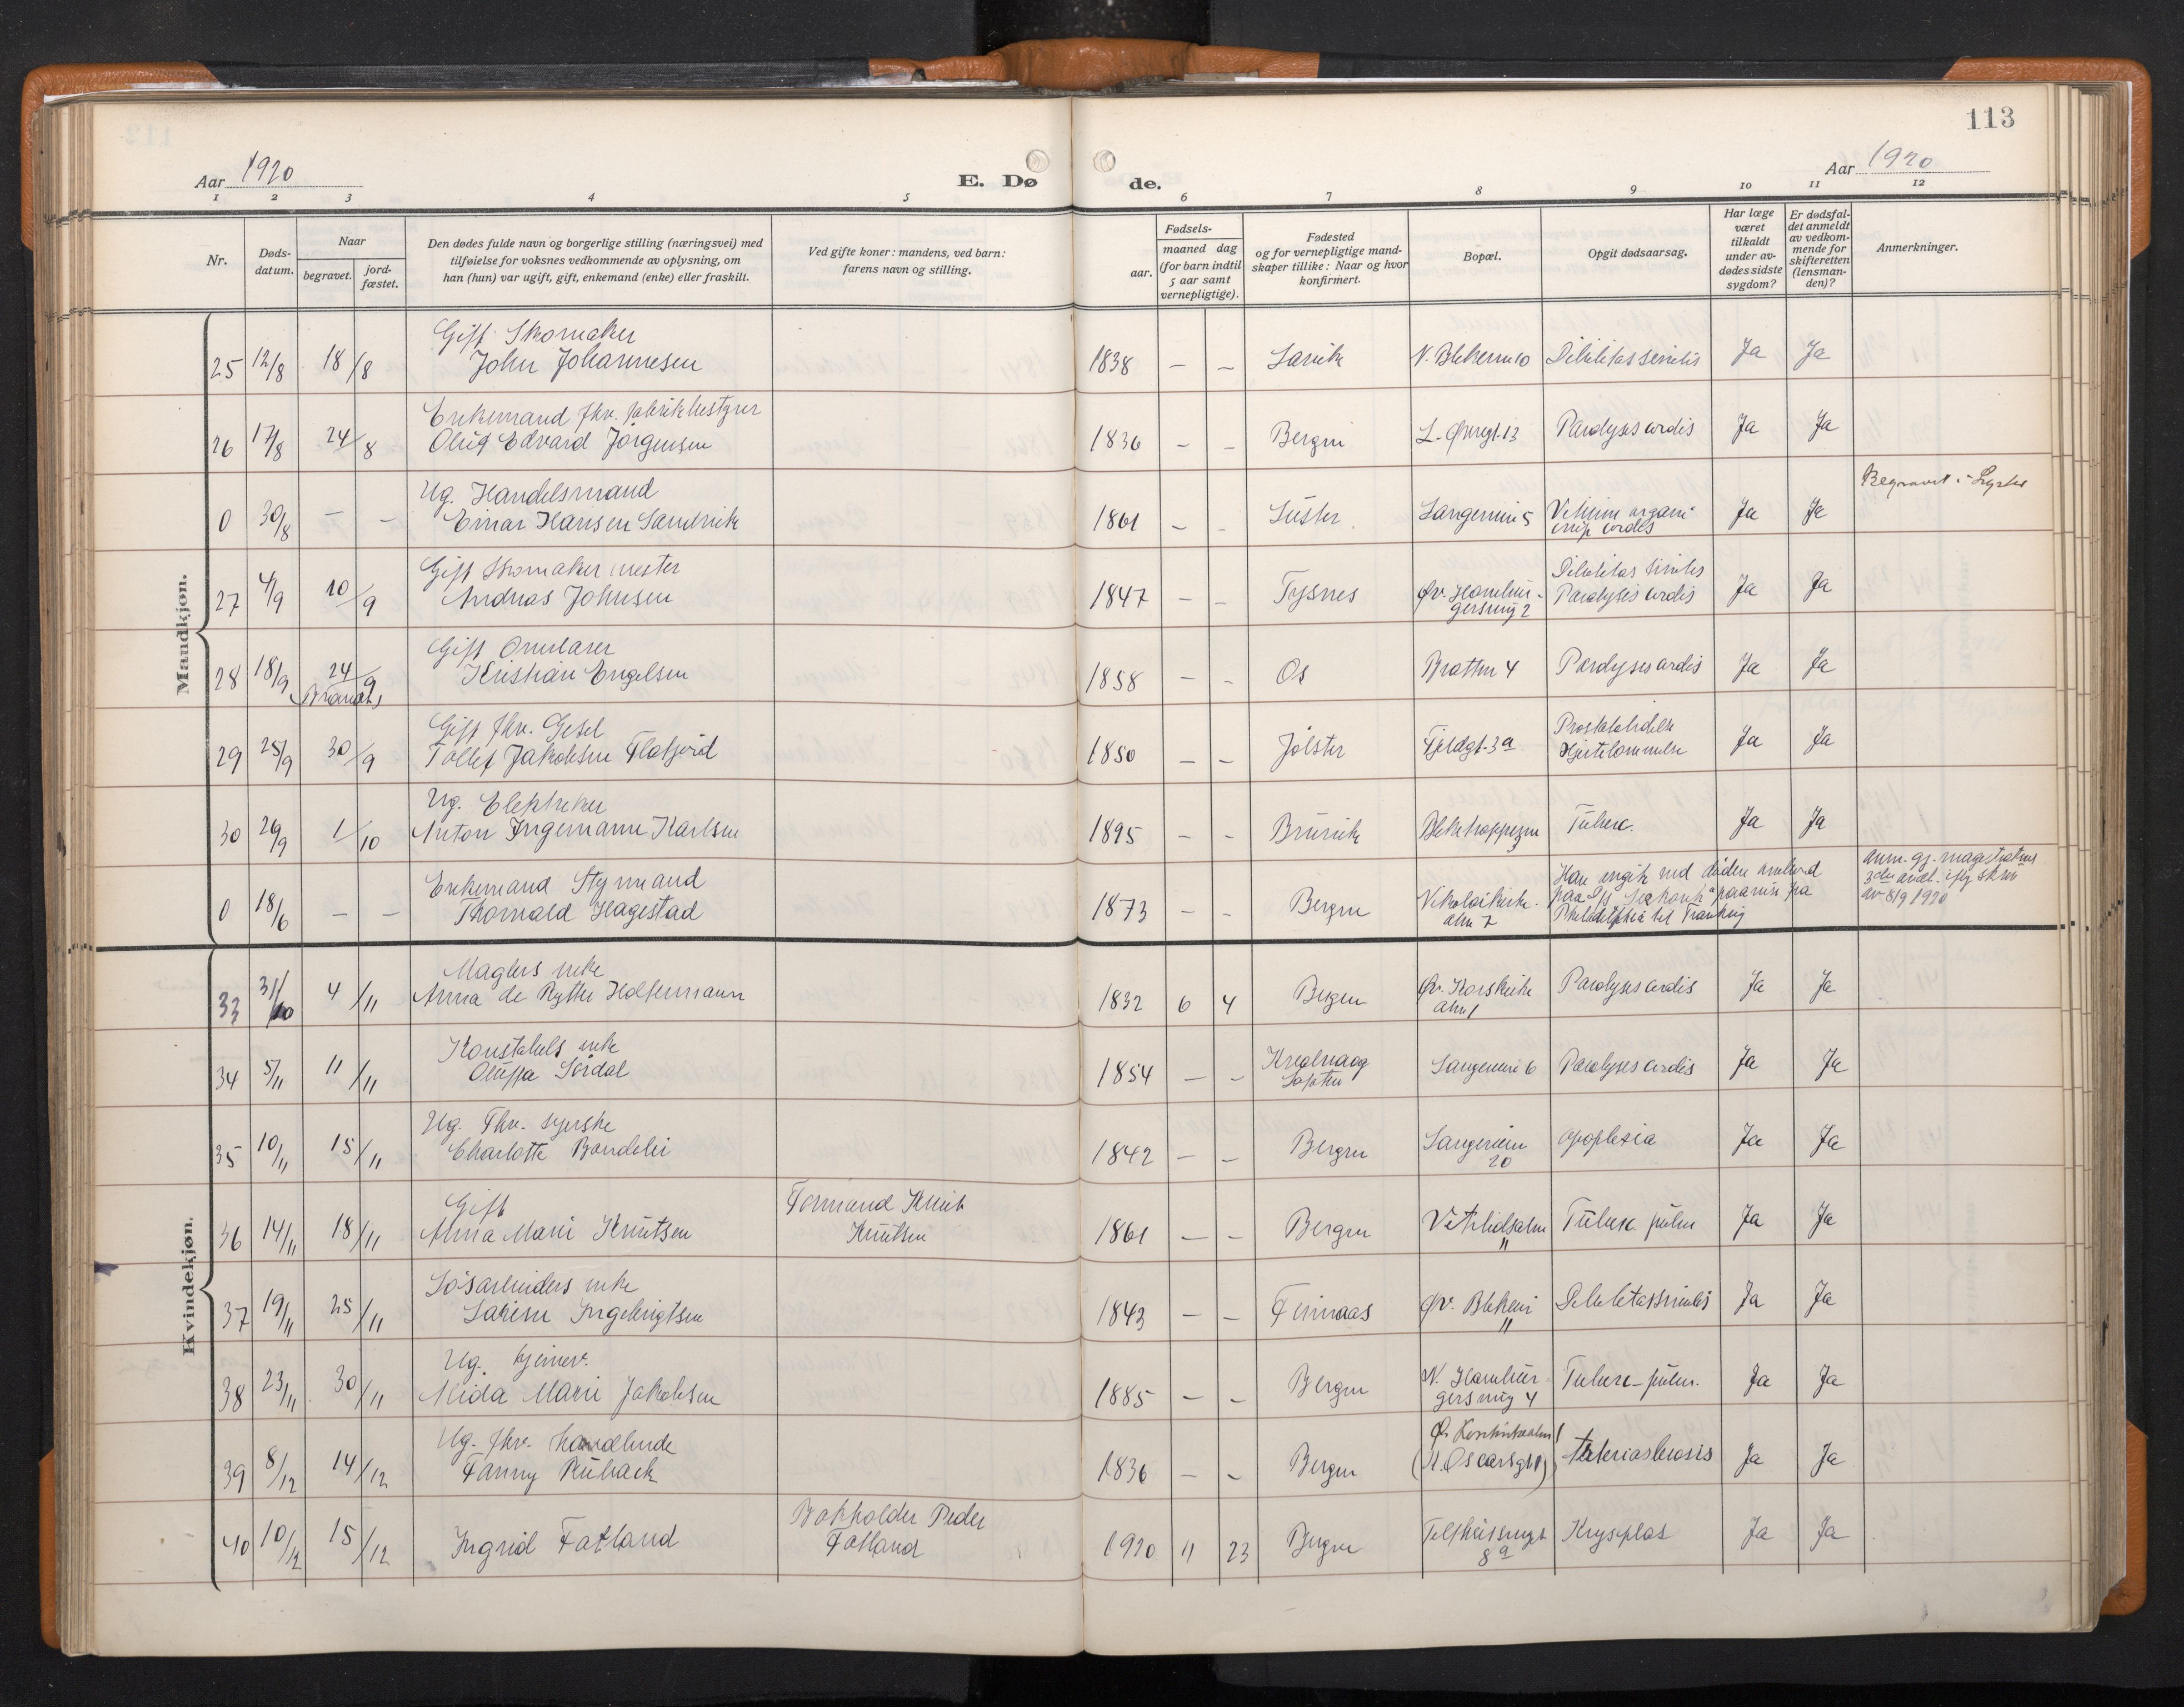 113
Aar 1920
E. Dø
de.
Aar 1920
1 2 3 4 5 6 7 8 9 10 11 12
Nr.
Døds-
datum.
Naar
begravet.
jord-
fæstet.
Den dødes fulde navn og borgerlige stilling (næringsvei) med
tilføielse for voksnes vedkommende av oplysning, om
han (hun) var ugift, gift, enkemand (enke) eller fraskilt.
Ved gifte koner: mandens, ved barn:
farens navn og stilling.
Fødsels-
aar.
maaned dag
(for barn indtil
5 aar samt
vernepligtige).
Fødested
og for vernepligtige mand-
skaper tillike: Naar og hvor
konfirmert.
Bopæl.
Opgit dødsaarsag.
Har læge
været
tilkaldt
under av-
dødes sidste
sygdom?
Er dødsfal-
det anmeldt
av vedkom-
mende for
skifteretten
(lensman-
den)?
Anmerkninger.
Mandkjøn.
Gift Skomaker
25 12/8 18/8 John Johannesen 1838 – – N. Blekevei 10 Debilitas senilis Ja Ja
Enkemand fhv.
26 17/8 24/8 Oluf Edvard Jörgensen 1836 – – Bergen L. Øvregt. 13 Paralysis cordis Ja Ja
Ug. Handelsmand
Begravet i
0 30/8 – – Einar Hansen 1861 – – Vitium organi
cordis Ja Ja
Gift Skomakermester
Debilitas senilis
27 4/9 10/9 Andreas Johnsen 1847 – – Tysnes Øv. Hambur-
gersmug 2 Paralysis cordis Ja Ja
Gift
28 18/9 24/9 Kristian Engelsen 1858 – – Os Bratten 4 Paralysis cordis Ja Ja
Gift fhv. Gesel
29 25/9 30/9 Tollef Jakobsen 1850 – – Jølster Fjeldgt. 3a
Hjertelammelse Ja Ja
Ug.
30 26/9 1/10 Anton Ingemann Karlsen 1895 – – Tuberc. Ja Ja
Enkemand Styrmand
0 18/6 – – Thorvald Hagestad 1873 – – Bergen Nikolaikirke-
alm 7
Han omgik ved döden ombord
paa reise fra
Philadelphia til Frankrig
Anm. gj. magistratens
3die avdel.
av 8/9 1920
Kvindekjøn.
Maglers enke
33 31/10 4/11 Anna de Rytter Holtermann 1832 6 4 Bergen Øv. Korskirke
alm 1 Paralysis cordis Ja Ja
Konstabels enke
34 5/11 11/11 Oluffa Sördal 1854 – – Paralysis cordis Ja Ja
Ug. Fhv. syerske
35 10/11 15/11 Charlotte 1842 – – Bergen
20 Apoplexia Ja Ja
Gift
Formand Knut
36 14/11 18/11 Anna Marie Knutsen Knutsen 1861 – – Bergen Vetrlidsalm
11 Tuberc. pulm Ja Ja
enke
37 19/11 25/11 Ingebrigtsen 1843 – – Finnaas Øv. Blekevei
11 Debilitas senilis Ja Ja
Ug.
38 23/11 30/11 Marie Jakobsen 1885 – – Bergen N. Hambur-
gersmug 4 Tuberc. pulm. Ja Ja
Ug. fhv. handlende
39 8/12 14/12 Fanny 1836 – – Bergen Ja Ja
Bokholder Peder
40 10/12 15/12 Ingrid Fatland Fatland 1920 11 23 Bergen
8a Ja Ja